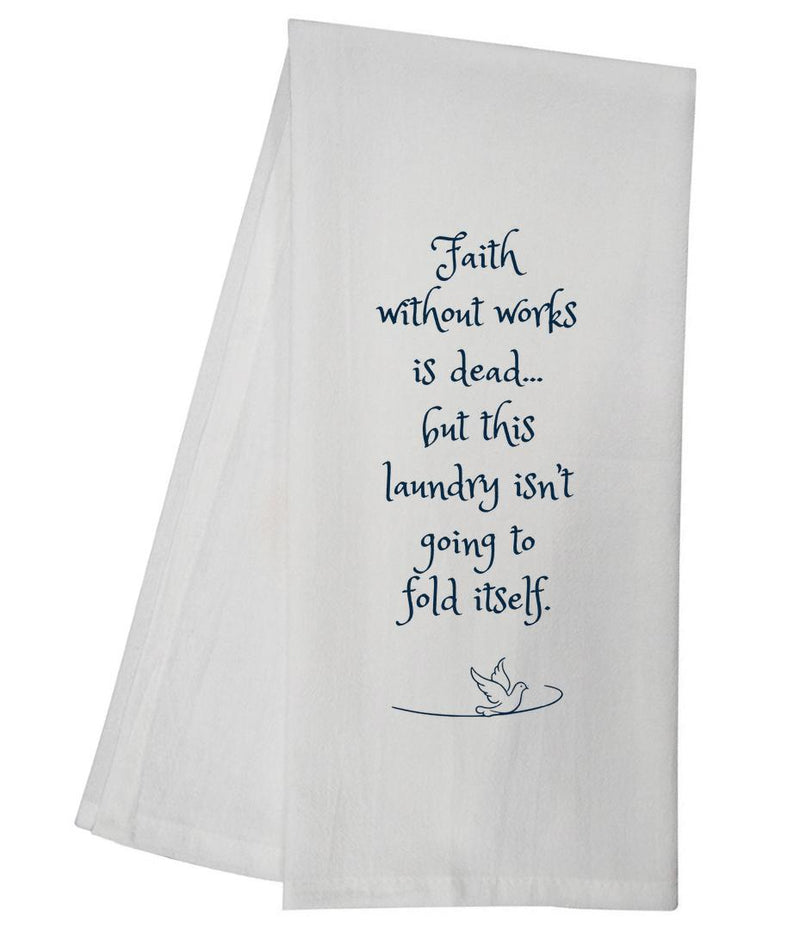 Faith
without works
is dead...
but this
laundry isn't
going to
fold itself.